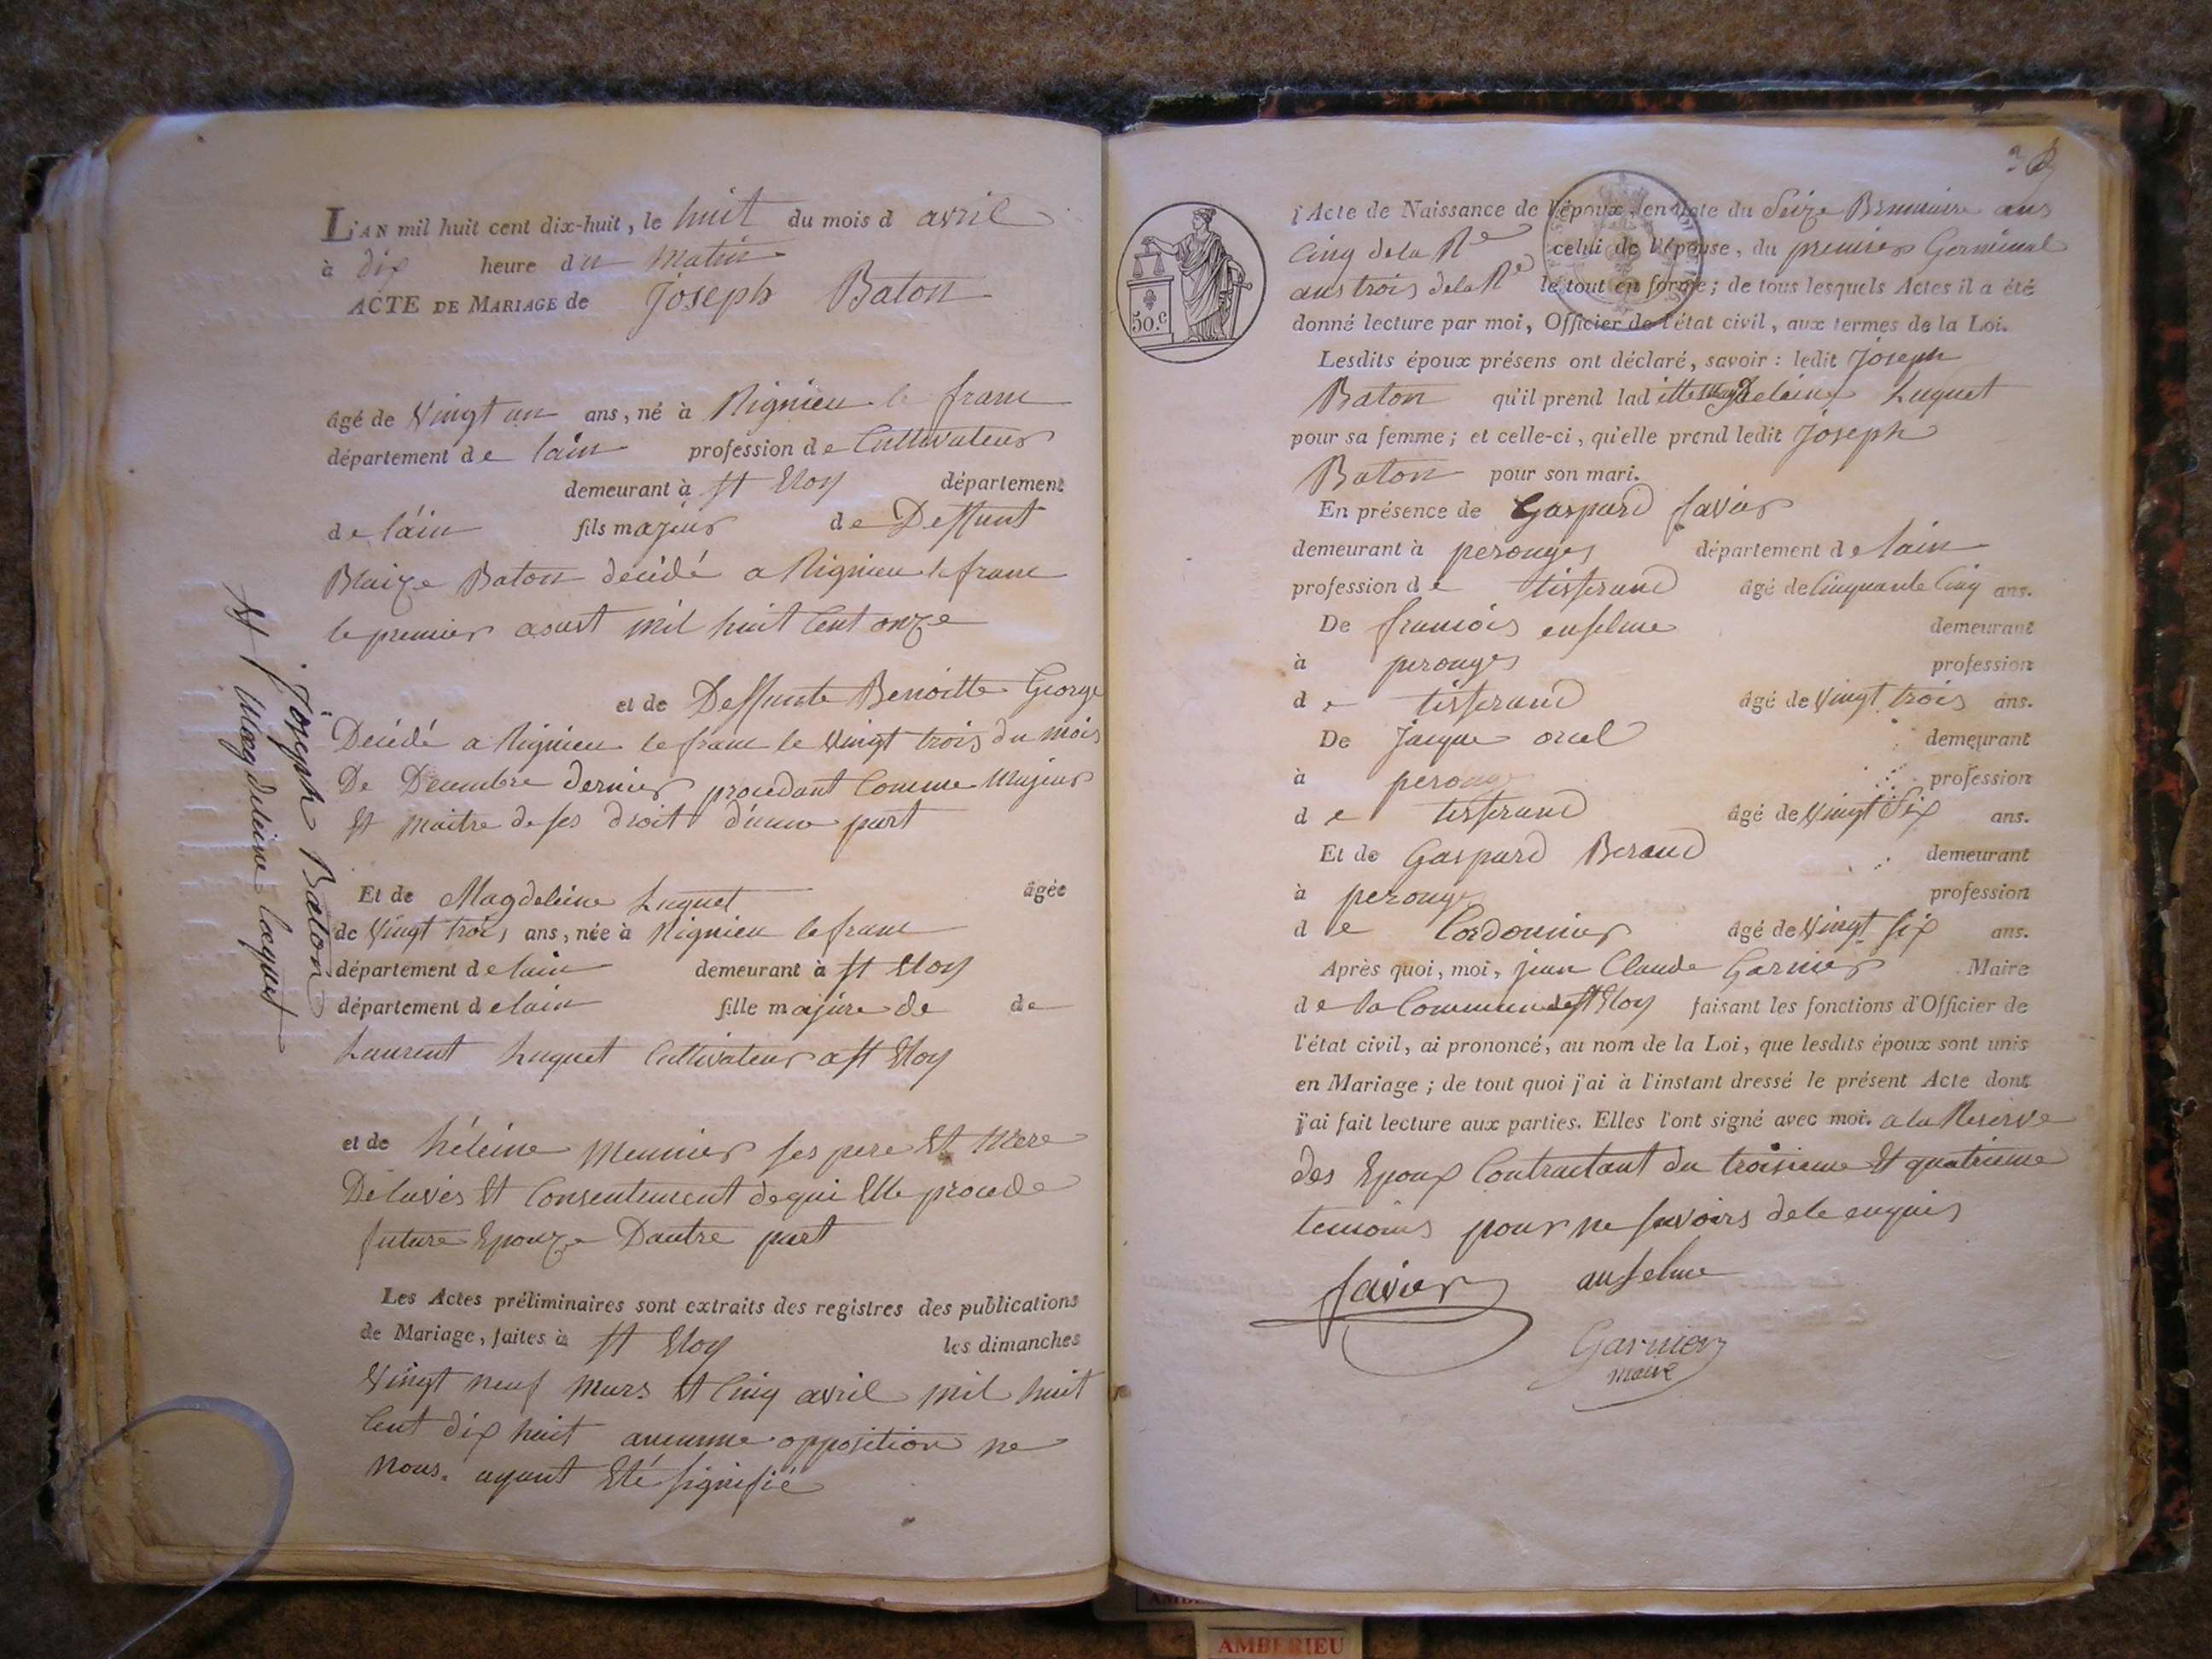 L'AN mil huit cent dix-huit, le huit du mois d avril
à dix heure du matin
ACTE DE MARIAGE de Joseph Baton
âgé de Vingt un ans, né à Rignieu le franc
département de lain profession de Cultivateur
demeurant à St Eloy département
de láin fils majeur de Deffunt
Blaize Baton decédé a Rignieu le franc
le premier aoust mil huit Cent onze
et de Deffunte Benoitte George
Decédé a Rignieu le franc le Vingt trois du mois
De Decembre dernier procedant Comme Majeur
Et maitre de ses droit d'une part
Et de Magdeleine Luquet âgée
de Vingt trois ans, née à Rignieu le franc
département de lain demeurant à St Eloy
département de lain fille majure de de
Laurent Luquet Cultivateur a St Eloy
et de héleine Meunier ses pere Et Mere
De lavis Et Consentement de qui Elle procede
future Epouze Dautre part
Les Actes préliminaires sont extraits des registres des publications
de Mariage, faites à St Eloy les dimanches
Vingt neuf Mars Et Cinq avril mil huit
Cent dix huit aucunne opposition ne
nous. ayant Eté signifié
Joseph Baton
Et Magdeleine Luquet
l'Acte de Naissance de l'époux, en date du Seize Brumaire ans
Cinq de la Re celui de l'épouse, du premier Germinal
ans trois de la Re le tout en forme; de tous lesquels Actes il a été
donné lecture par moi, Officier de l'état civil, aux termes de la Loi.
50.c
Lesdits époux présens ont déclaré, savoir: ledit Joseph
Baton qu'il prend laditte Magdeleine Luquet
pour sa femme; et celle-ci, qu'elle prend ledit Joseph
Baton pour son mari.
En présence de Gaspard favier
demeurant à perouges département de lain
profession de tisserand âgé de Cinquante Cinq ans.
De francois enselme demeurant
à perouges profession
de tisserand âgé de Vingt trois ans.
De Jacque orcel demeurant
à perouge profession
de tisserand âgé de Vingt Six ans.
Et de Gaspard Beraud demeurant
à perouge profession
de Cordonnier âgé de Vingt six ans.
Après quoi, moi, jean Claude Garnier Maire
de la Commune de St Eloy faisant les fonctions d'Officier de
l'état civil, ai prononcé, au nom de la Loi, que lesdits époux sont unis
en Mariage; de tout quoi j'ai à l'instant dressé le présent Acte dont
j'ai fait lecture aux parties. Elles l'ont signé avec moi. a la Reserve
des Epoux Contractant du troisieme Et quatrieme
temoins pour ne savoirs de ce enquis
favier anselme
Garnier
maire
AMBERIEU